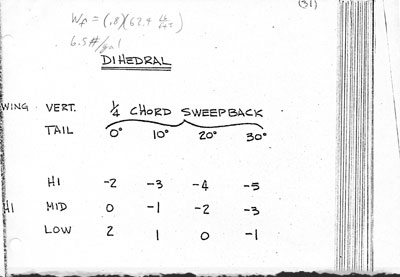 (31)
W_f = (.8)(62.4 #/ft³)
6.5#/gal
DIHEDRAL
WING VERT. ¼ CHORD SWEEPBACK
TAIL 0° 10° 20° 30°
HI -2 -3 -4 -5
HI MID 0 -1 -2 -3
LOW 2 1 0 -1